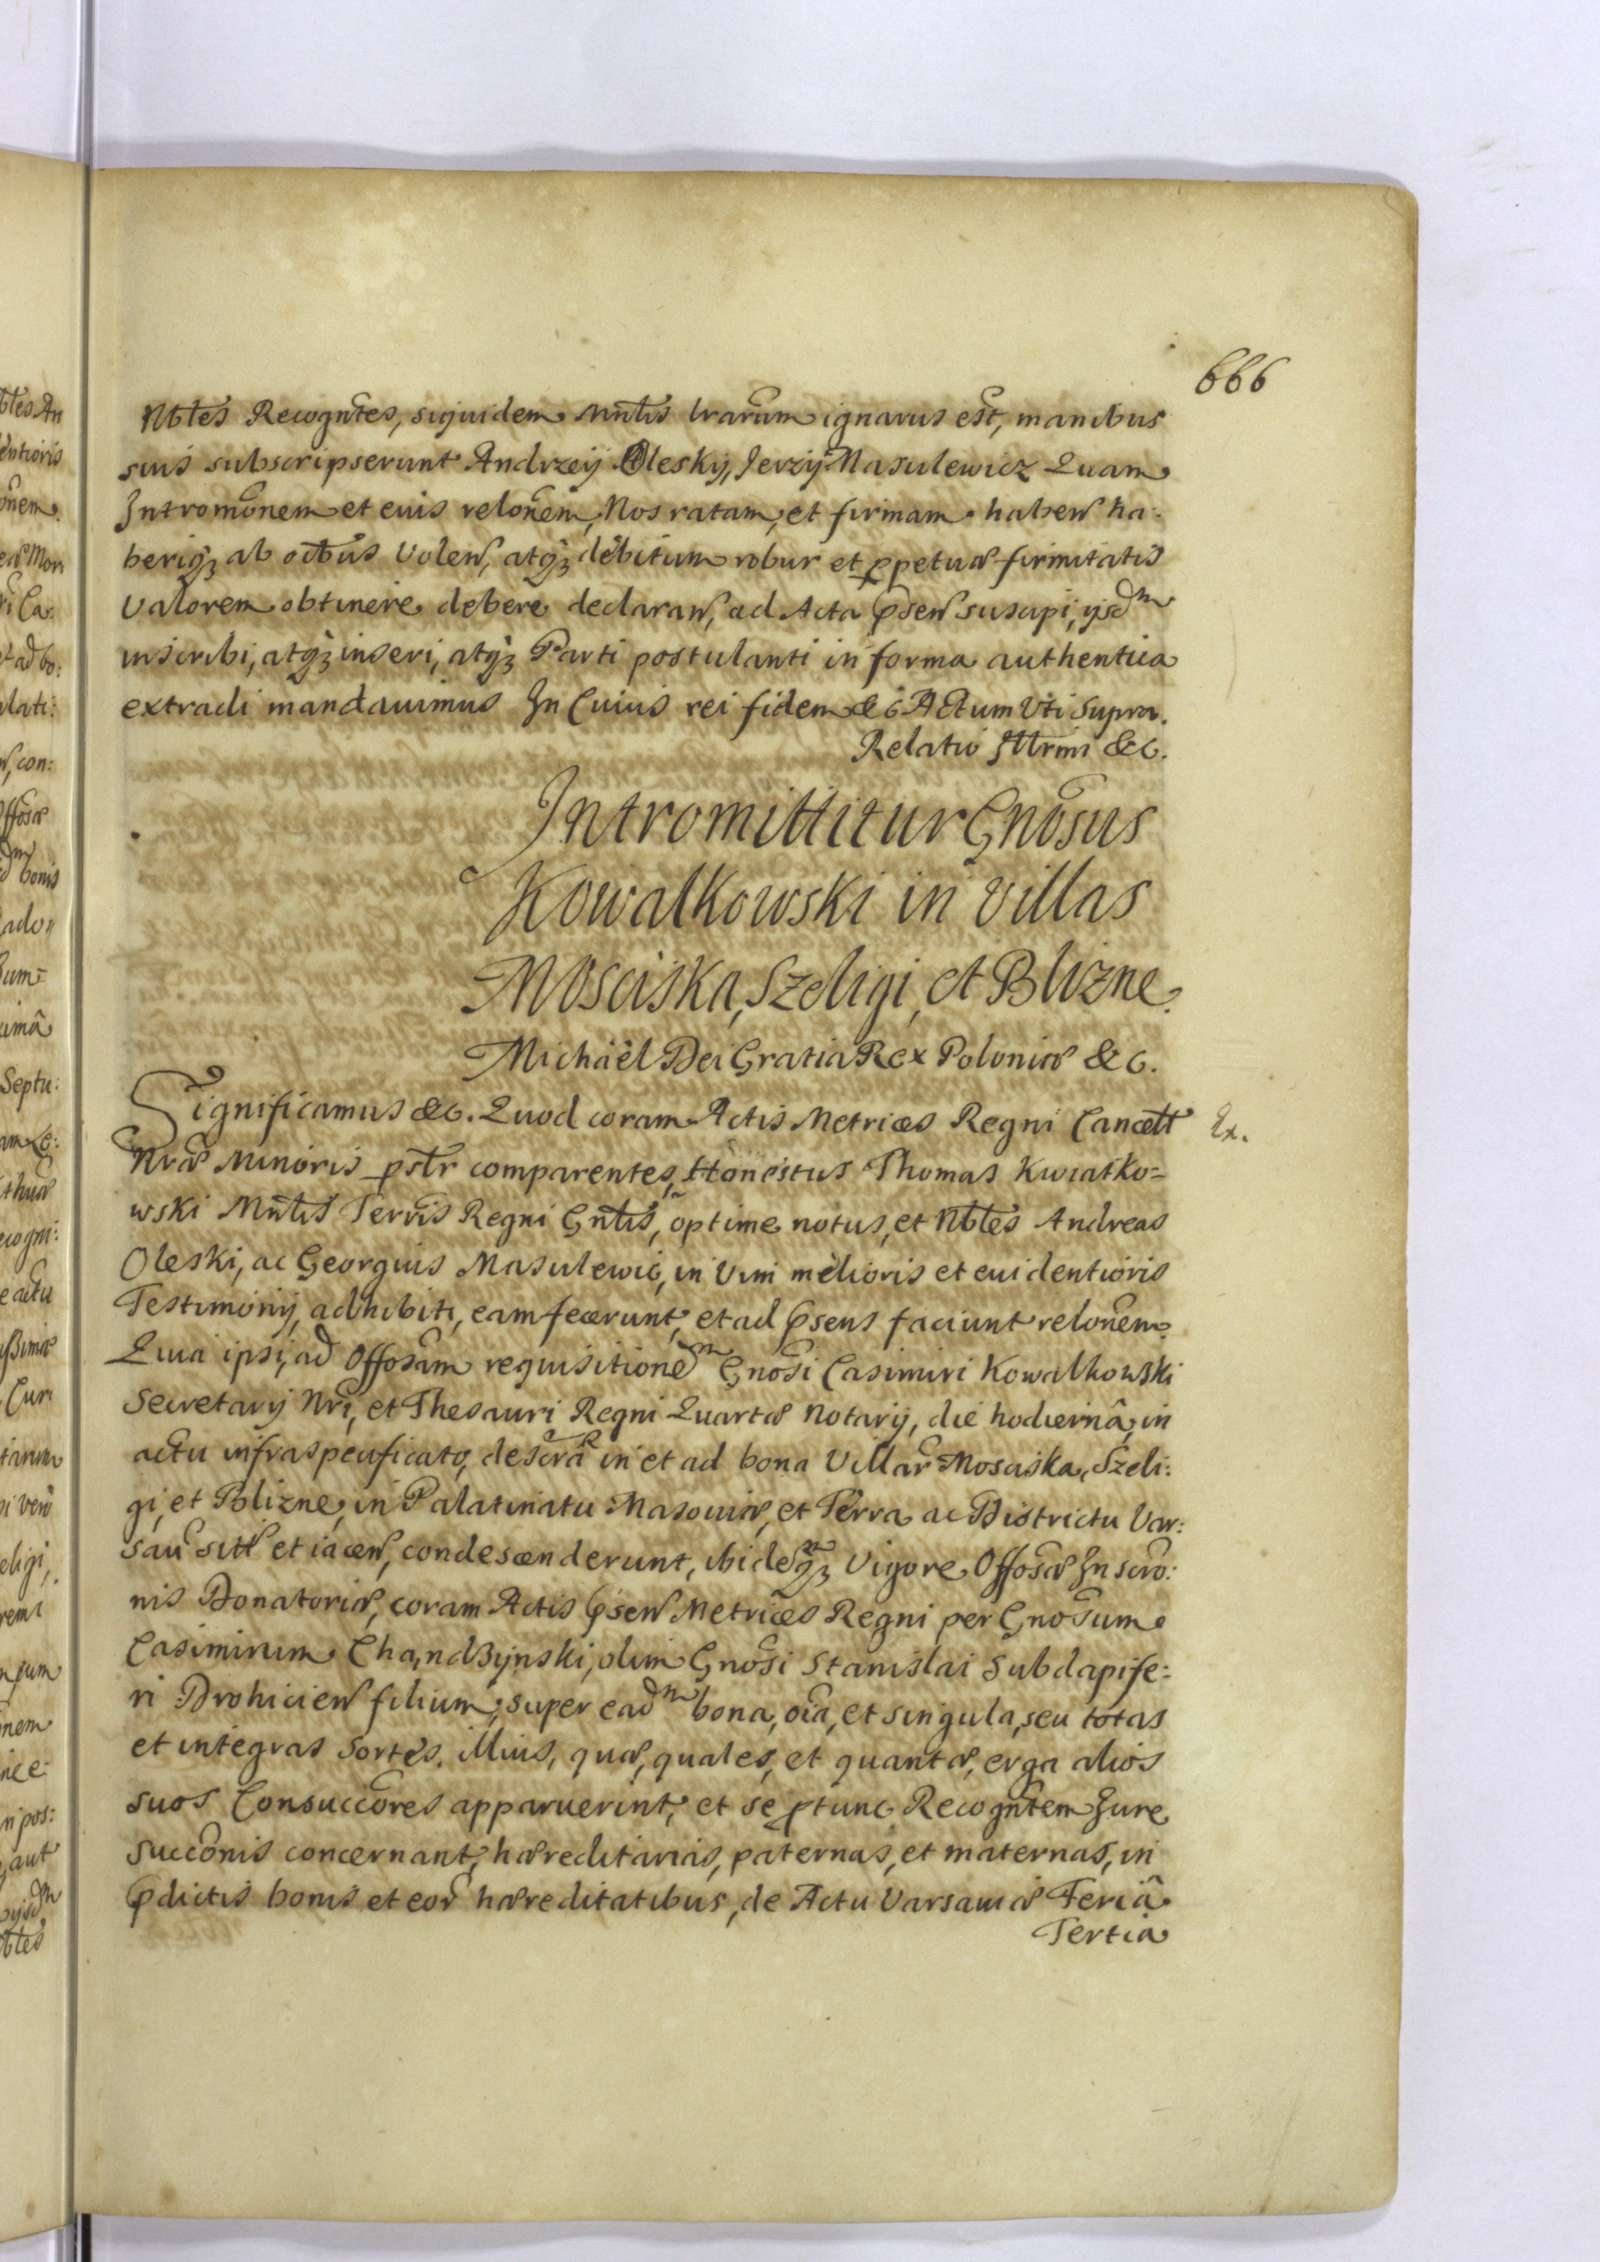 666
Nbtes Recogntes, siquidem Mntis lrarum ignarus est, manibus
suis subscripserunt Andrzeÿ Oleskÿ, Jerzÿ Masulewicz Quam
Intromonem et eius relonem, Nos ratam, et firmam haben ha:
beriq3 ab oibus volen, atq3 debitum robur et ppetuæ firmitatis
Valorem obtinere debere declaran, ad Acta psen suscipi, ijsdm
inscribi, atq3 inseri, atq3 Parti postulanti in forma authentica
extradi mandavimus In Cuius rei fidem &c Actum Uti Supra.
Relatio Illrmi &c.
Intromittitur Gnosus
Kowalkowski in Villas
Mosciska, Szeligi, et Blizne.
Michaël Dei Gratia Rex Poloniæ &c.
Significamus &c. Quod coram Actis Metrices Regni Cancell
Nræ Minoris pstr comparentes, Honestus Thomas Kwiatko=
wski Mntis Terris Regni Gntis, optime notus, et Nbtes Andreas
Oleski, ac Georgius Masulewic, in Vim melioris et euidentioris
Testimonij, adhibiti, eam fecerunt, et ad psens faciunt relonem.
Quia ipsi, ad Offosam requisitionem Gnosi Casimiri Kowalkowski
Secretarij Nri, et Thesauri Regni Quartæ Notarij, die hodiernâ, in
actu infraspecificato, descrâ in et ad bona Villar Mosciska, Szeli:
gi, et Blizne, in Palatinatu Masouiæ, et Terra ac Districtu Var:
sau sitt et iacen, condescenderunt, ibidemq3 Vigore Offosæ Inscro:
nis Donatoriæ, coram Actis psen Metrices Regni per Gnosum
Casimirum Chandzynski, olim Gnosi Stanislai Subdapife:
ri Drohicien filium, super eadm bona, oia, et singula, seu totas
et integras Sortes. illius, quæ, quales, et quantæ, erga alios
suos Consuccores apparuerint, et se ptunc Recogntem Jure
succonis concernant, hæreditarias, paternas, et maternas, in
pdictis bonis et eor hæreditatibus, de Actu Varsauiæ Feriâ
Tertia
Ex.